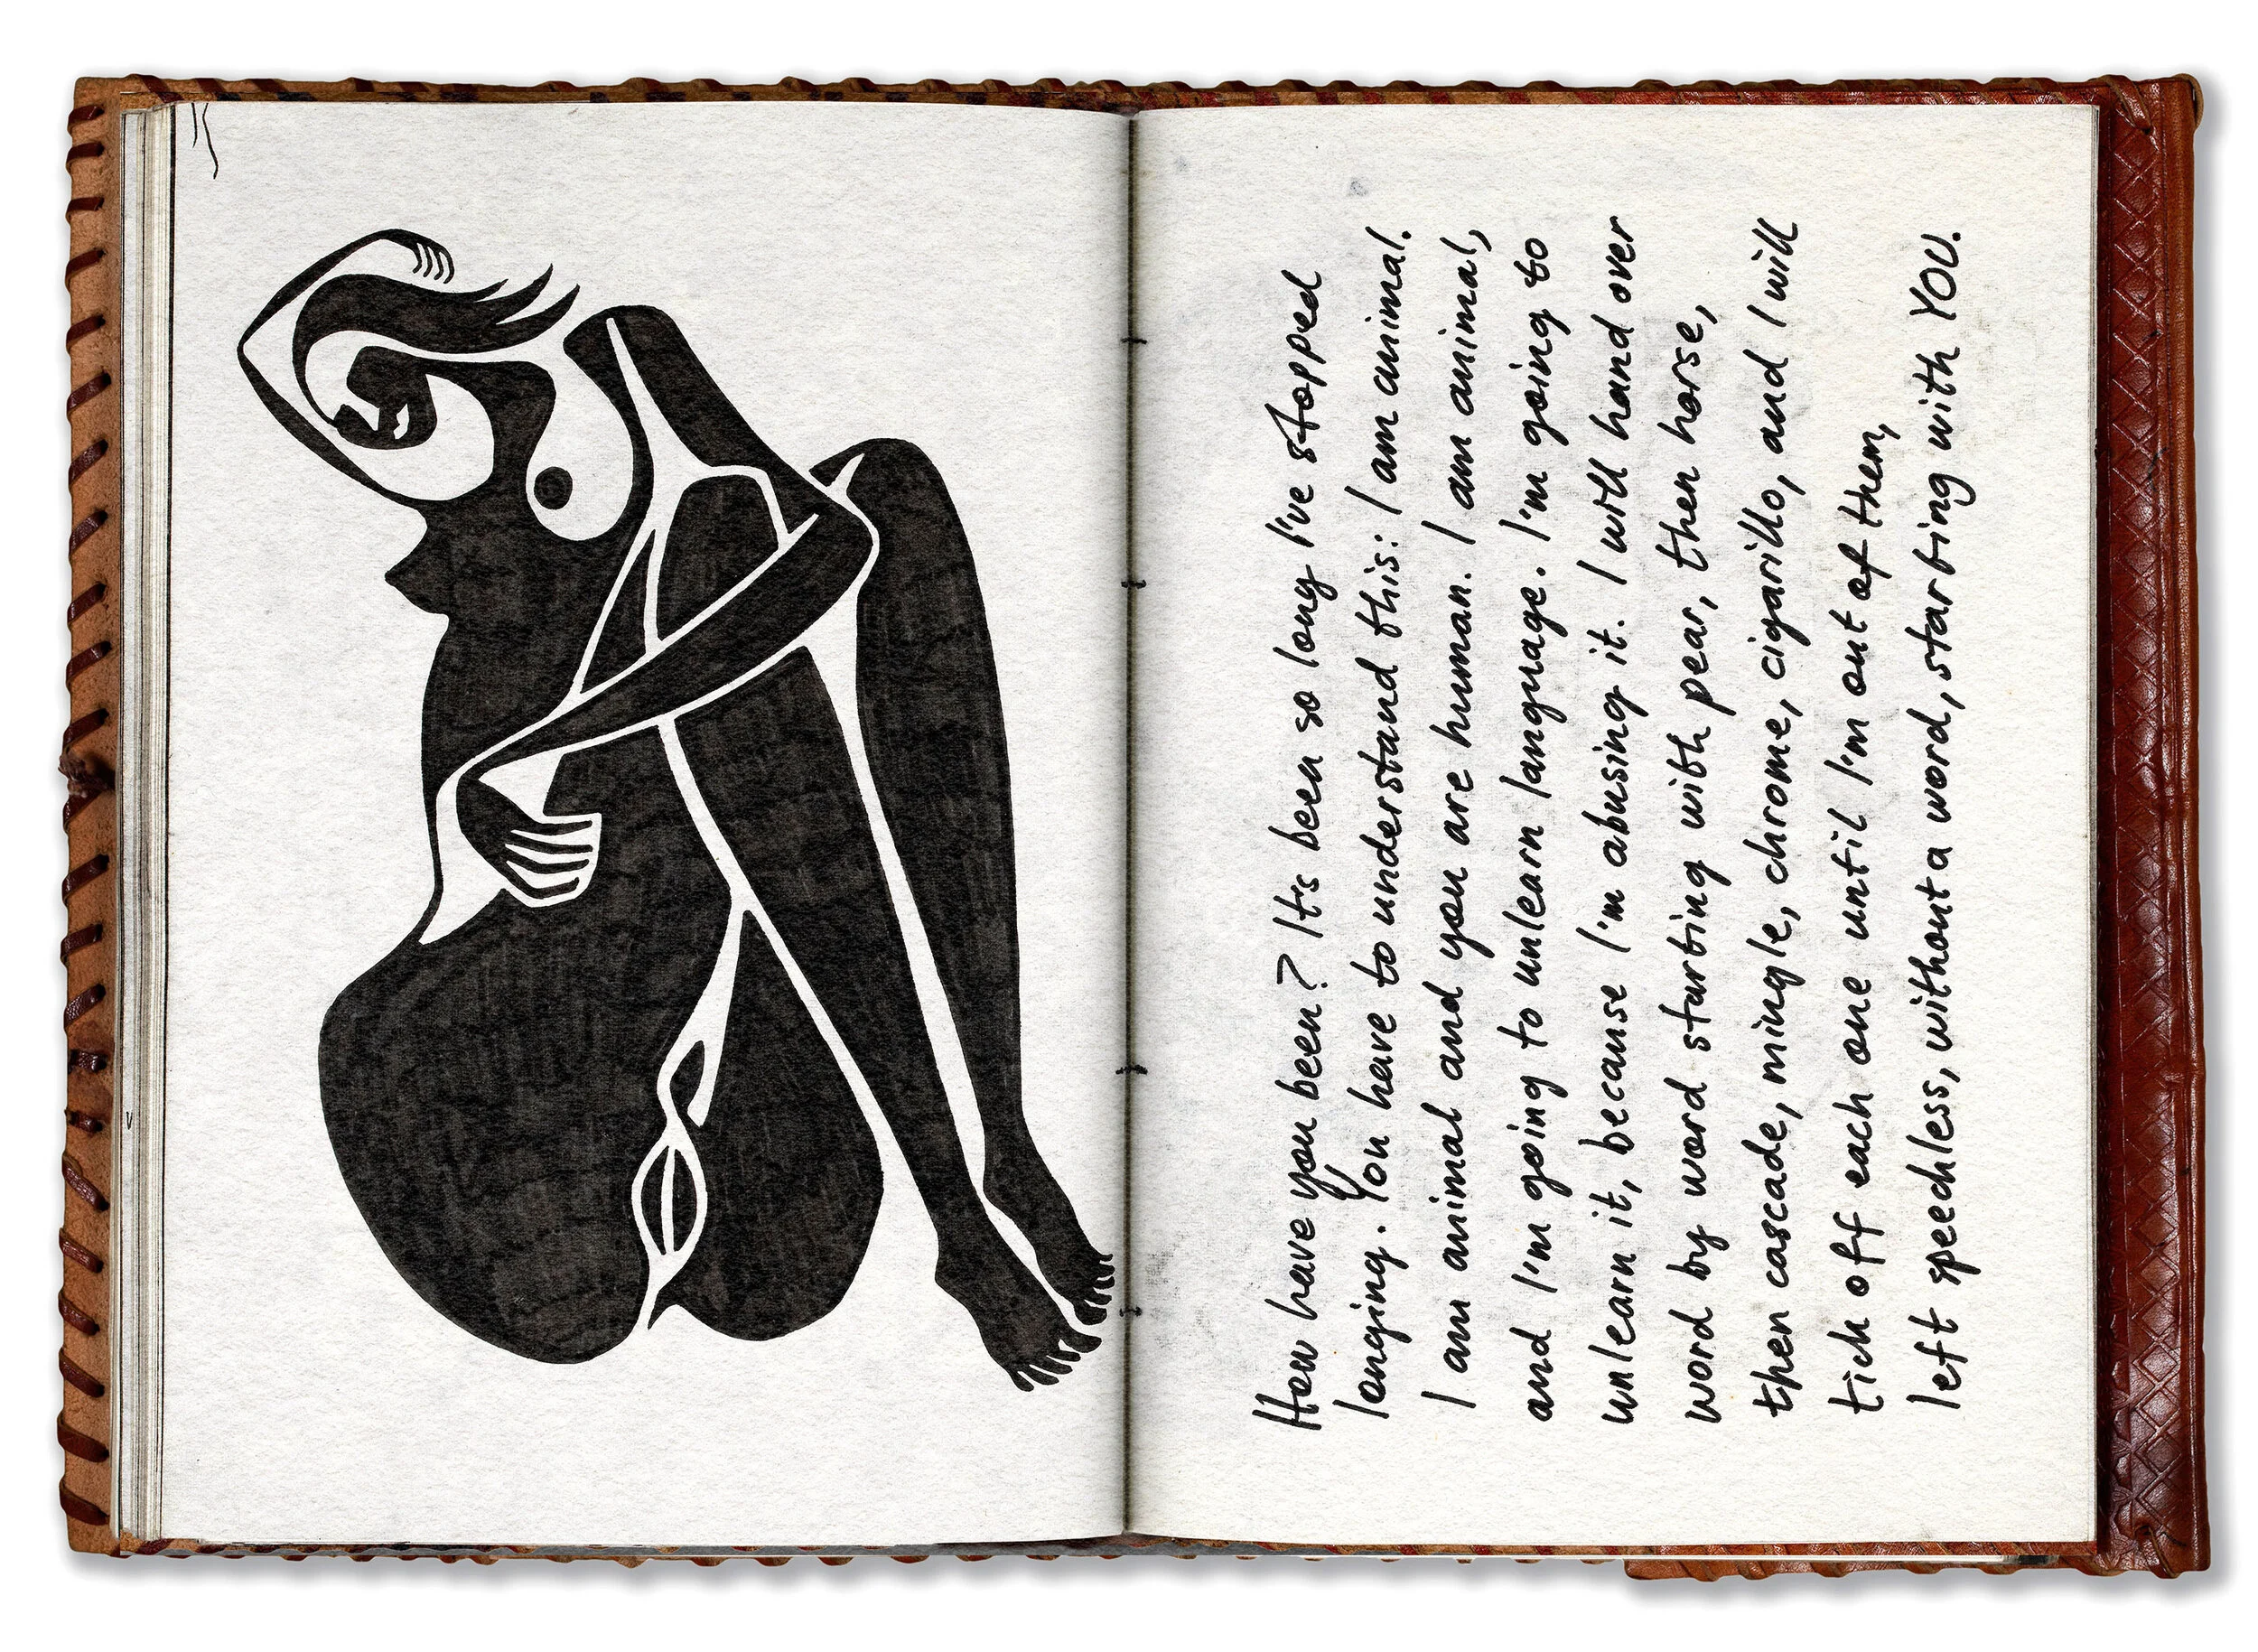 How have you been? It's been so long I've stopped
longing. You have to understand this: I am animal.
I am animal and you are human. I am animal,
and I'm going to unlearn language. I'm going to
unlearn it, because I'm abusing it. I will hand over
word by word starting with pear, then horse,
then cascade, mingle, chrome, cigarillo, and I will
tick off each one until I'm out of them,
left speechless, without a word, starting with YOU.